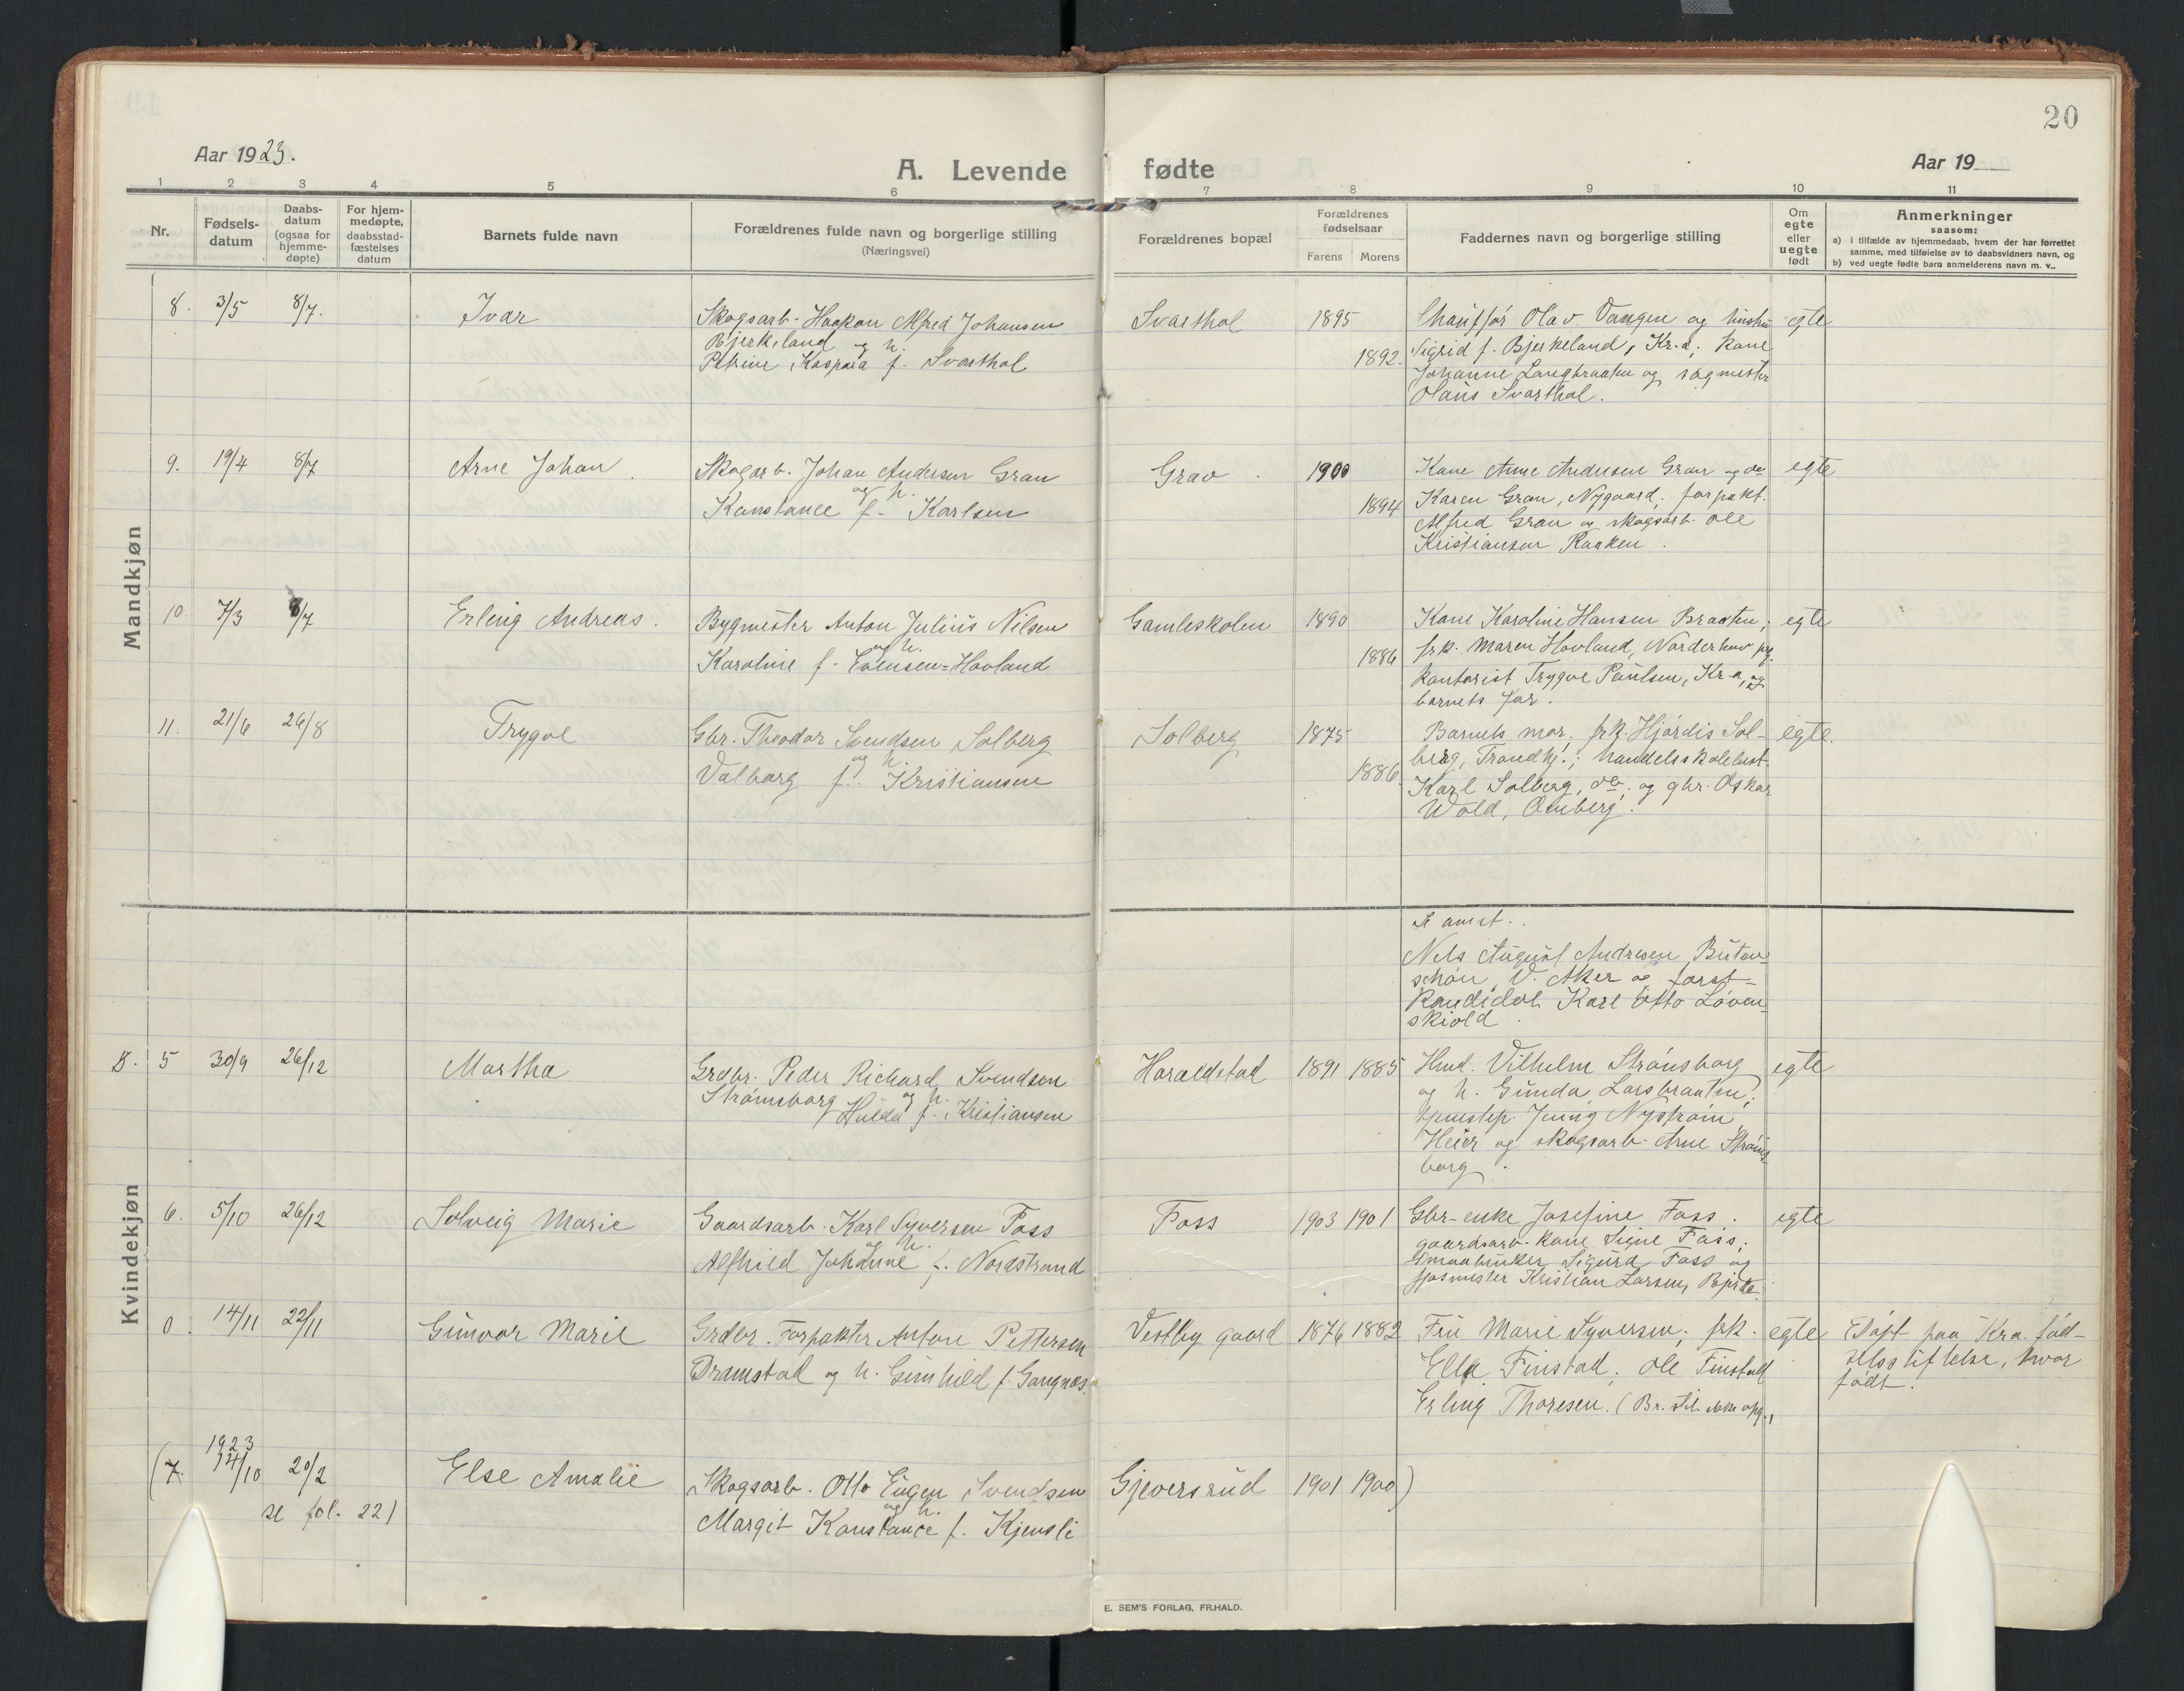 20
Aar 1923.
A. Levende fødte
Aar 19
1 2 3 4 5 6 7 8 9 10 11
Nr.
Fødsels-
datum
Daabs-
datum
(ogsaa for
hjemme-
døpte)
For hjem-
medøpte,
daabsstad-
fæstelses
datum
Barnets fulde navn
Forældrenes fulde navn og borgerlige stilling
(Næringsvei)
Forældrenes bopæl
Forældrenes
fødselsaar
Farens Morens
Faddernes navn og borgerlige stilling
Om
egte
eller
uegte
født
Anmerkninger
saasom:
a) i tilfælde av hjemmedaab, hvem der har forrettet
samme, med tilføielse av to daabsvidners navn, og
b) ved uegte fødte barn anmelderens navn m. v..
Mandkjøn
8. 3/5 8/7. Ivar
Skogsarb. Haakon Alfred Johansen
Bjerkeland og h.
Petrine Kaspara f. Svarthol
Svarthol 1895 1892.
Chauffør Olav Vangen og hustru
Sigrid f. Bjerkeland, Kr.a; kone
Johanne Langbraaten og sagmester
Olaus Svarthol.
egte
9. 19/4 8/7 Arne Johan.
Skogarb. Johan Andersen Gran
og h.
Konstance f. Karlsen
Grav 1900 1894
Kone Anne Andersen Gran og do
Karen Gran, Nygaard; forpakt.
Alfred Gran og skogsarb. Ole
Kristiansen Raaken.
egte
10. 7/3 8/7 Erling Andreas.
Bygmester Anton Julius Nilsen
og h.
Karoline f. Evensen-Hovland
Gamleskolen 1890 1886
Kone Karoline Hansen Braaten;
frk. Maren Hovland, Norderhov pg.
kontorist Trygve Paulsen, Kr.a, og
barnets far.
egte
11. 21/6 26/8 Trygve
Gbr. Theodor Svendsen Solberg
og h.
Valborg f. Kristiansen
Solberg 1875 1886.
Barnets mor. frk. Hjørdis Sol-
berg, Trondhj.; handelsskolebest.
Karl Solberg, do; og gbr. Oskar
Wold, Omberg.
egte.
Kvindekjøn
Nels August Andresen Buten-
schøn, V. Aker og forst-
kandidat Karl Otto Løven-
skiold.
D. 5 30/9 26/12 Martha
Grdbr. Peder Richard Svendsen
Strømsborg og h.
Hulda f. Kristiansen
Haraldstad 1891 1885
Hmd. Vilhelm Strømsborg
og h. Gunda Larsbraaten;
tjenestep. Jenny Nystrøm
Heier og skogsarb. Arne Strøms
borg.
egte
6. 5/10 26/12 Solveig Marie
Gaardsarb. Karl Syversen Foss
og h.
Alfhild Johanne f. Nordstrand
Foss 1903 1901
Gbr-enke Josefine Foss.
gaardsarb. kone Signe Foss;
smaabruker Sigurd Foss og
fjøsmester Kristian Larsen,
egte
0. 14/11 22/11 Gunvor Marie
Grdbr. Forpakter Anton Pettersen
Dramstad og h. Gunhild f. Gangnæs.
Vestby gaard 1876 1882
Fru Marie Syversen; frk.
Ella Finstad; Ole Finstad
Erling Thoresen. (Br. stil. ikke opg.,
egte
Døpt paa Kra. fød-
selsstiftelse, hvor
født.
1923
(7. 14/10 20/2 Else Amalie
se fol. 22)
Skogsarb. Otto Eugen Svendsen
og h.
Margit Konstance f. Kjensli
Gjeversrud 1901 1900)
E. SEM'S FORLAG, FR.HALD.